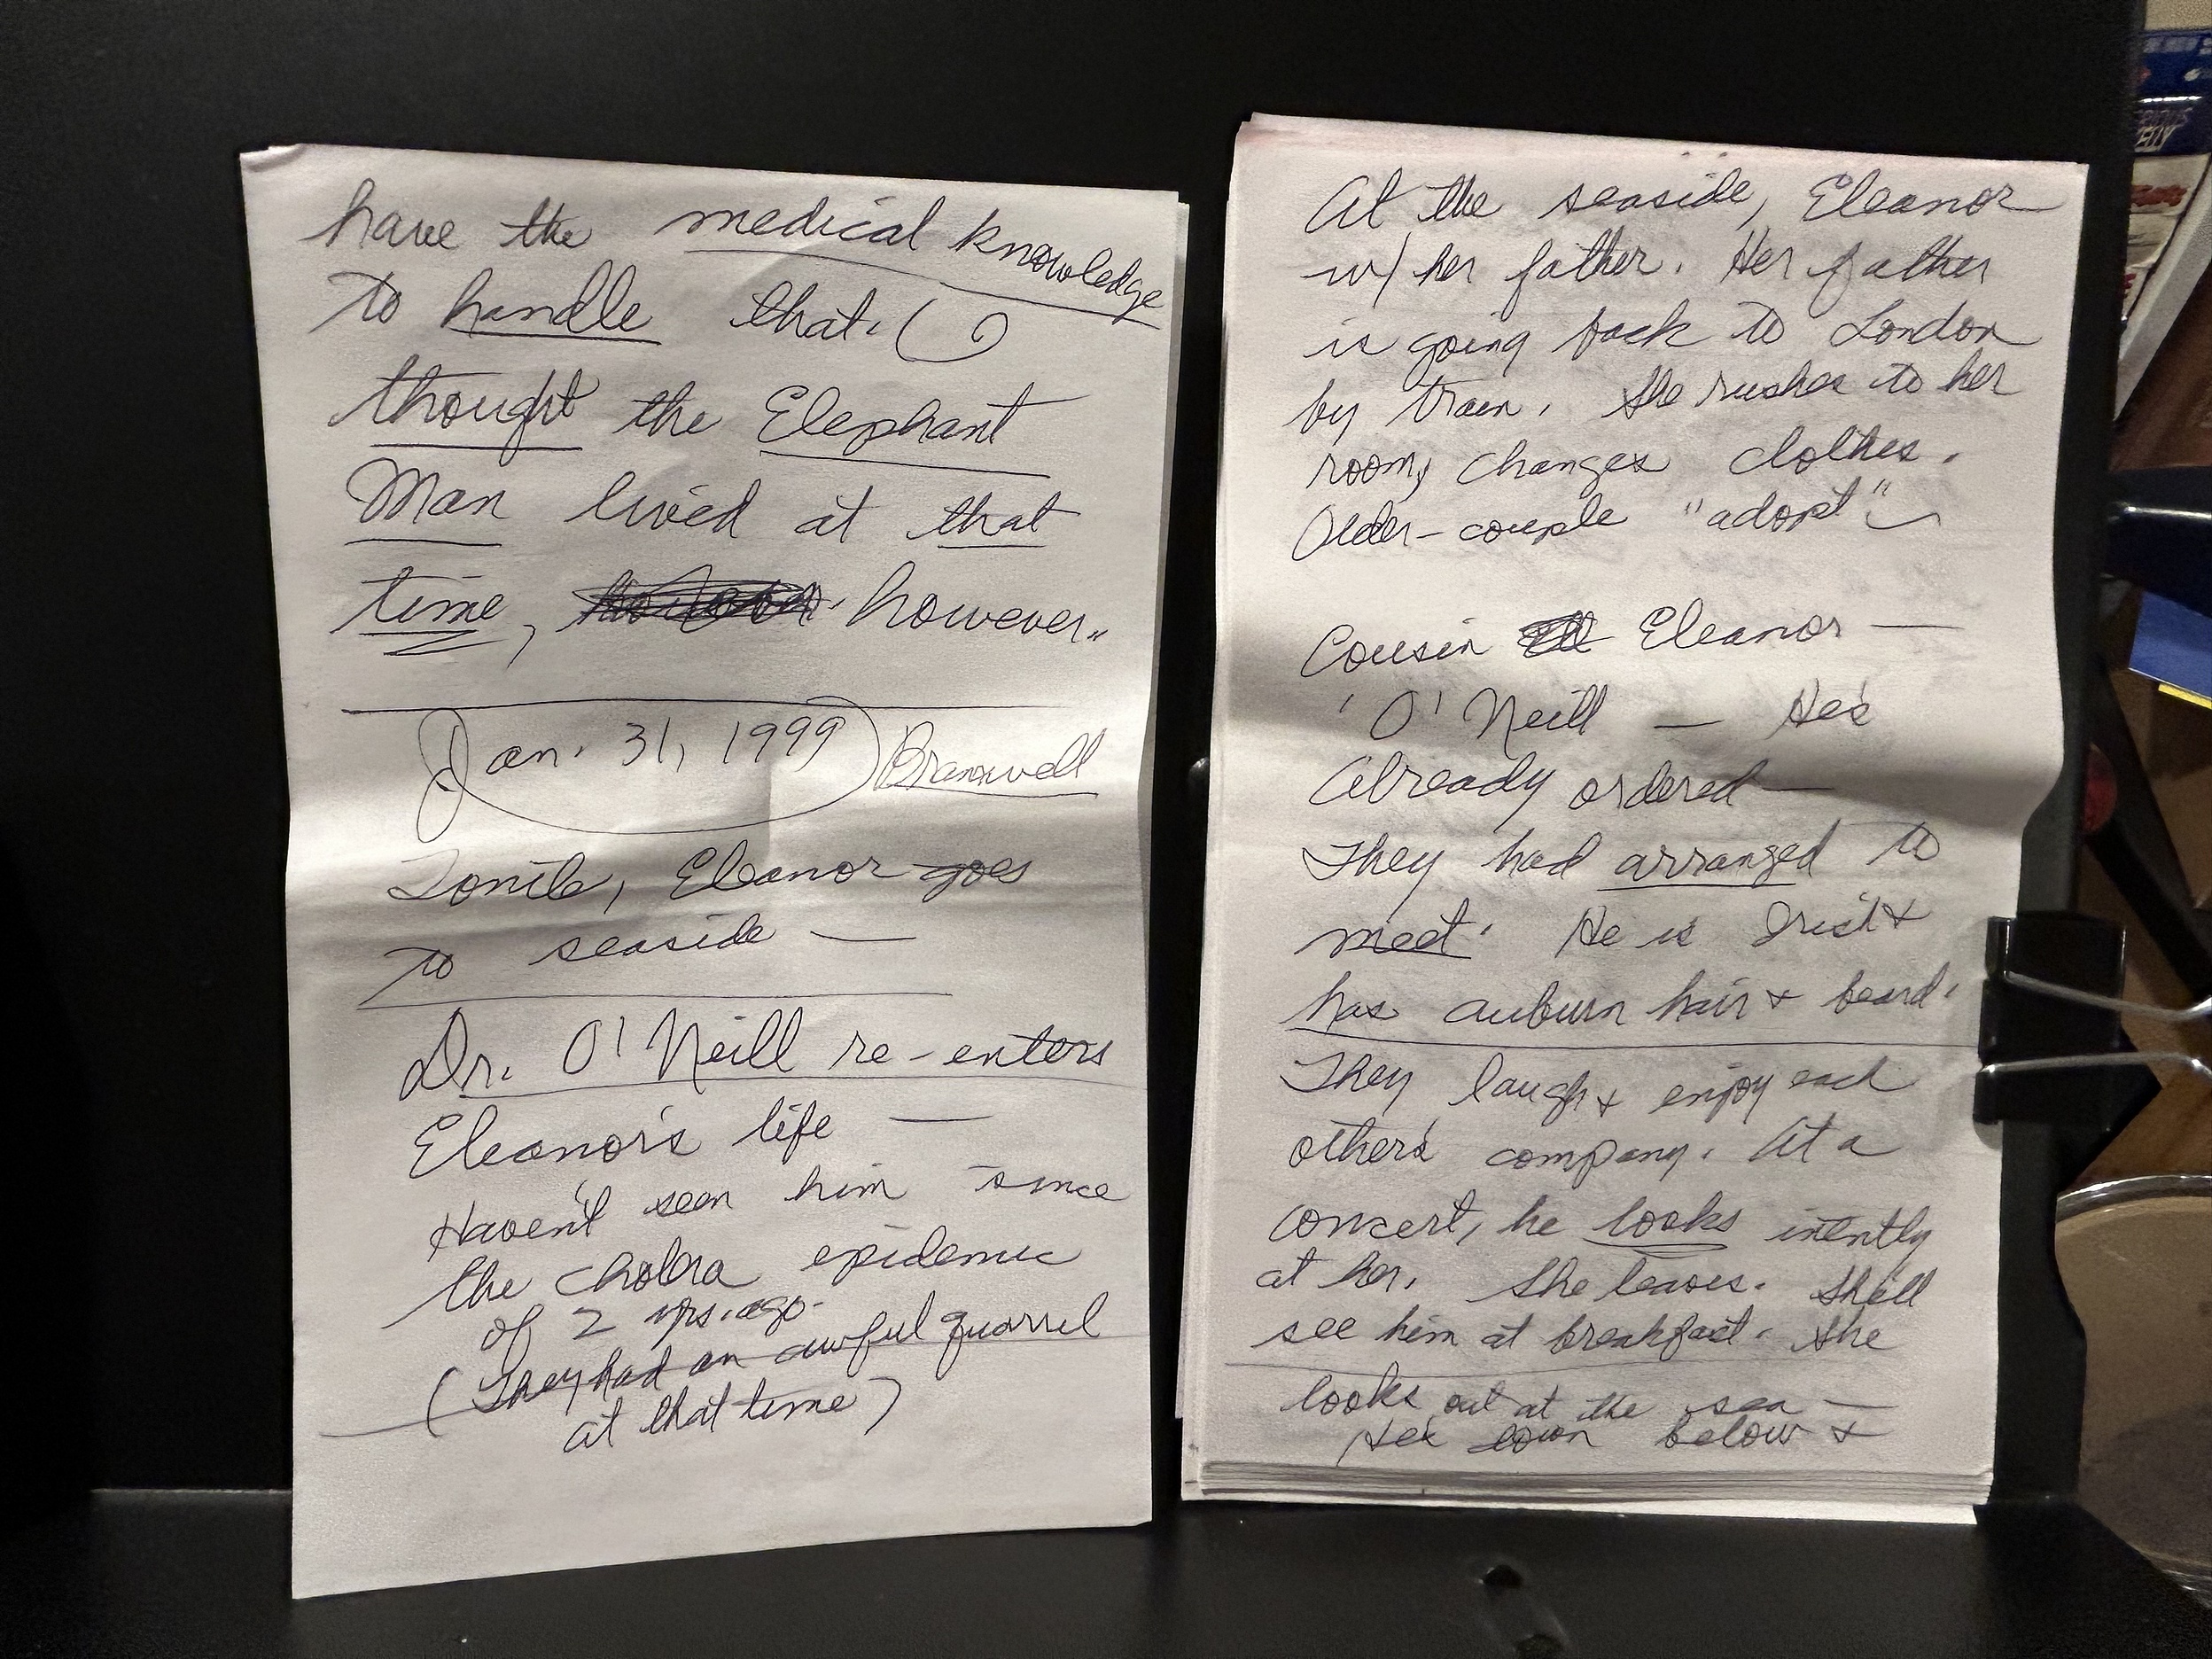 have the medical knowledge
to handle that. (I
thought the Elephant
Man lived at that
time, however..
Jan. 31, 1999 Bramwell
Tonite, Eleanor goes
to seaside —
Dr. O'Neill re-enters
Eleanor's life —
Haven't seen him since
the cholera epidemic
of 2 yrs. ago.
(They had an awful quarrel
at that time)
At the seaside, Eleanor
w/ her father. Her father
is going back to London
by train. She rushes to her
room, changes clothes.
Older-couple "adopt"
Cousin Eleanor —
'O' Neill — He's
Already ordered —
They had arranged to
meet. He is Irish &
has auburn hair & beard.
They laugh & enjoy each
other's company. At a
concert, he looks intently
at her. She leaves. She'll
see him at breakfast. She
looks out at the sea —
He's down below &